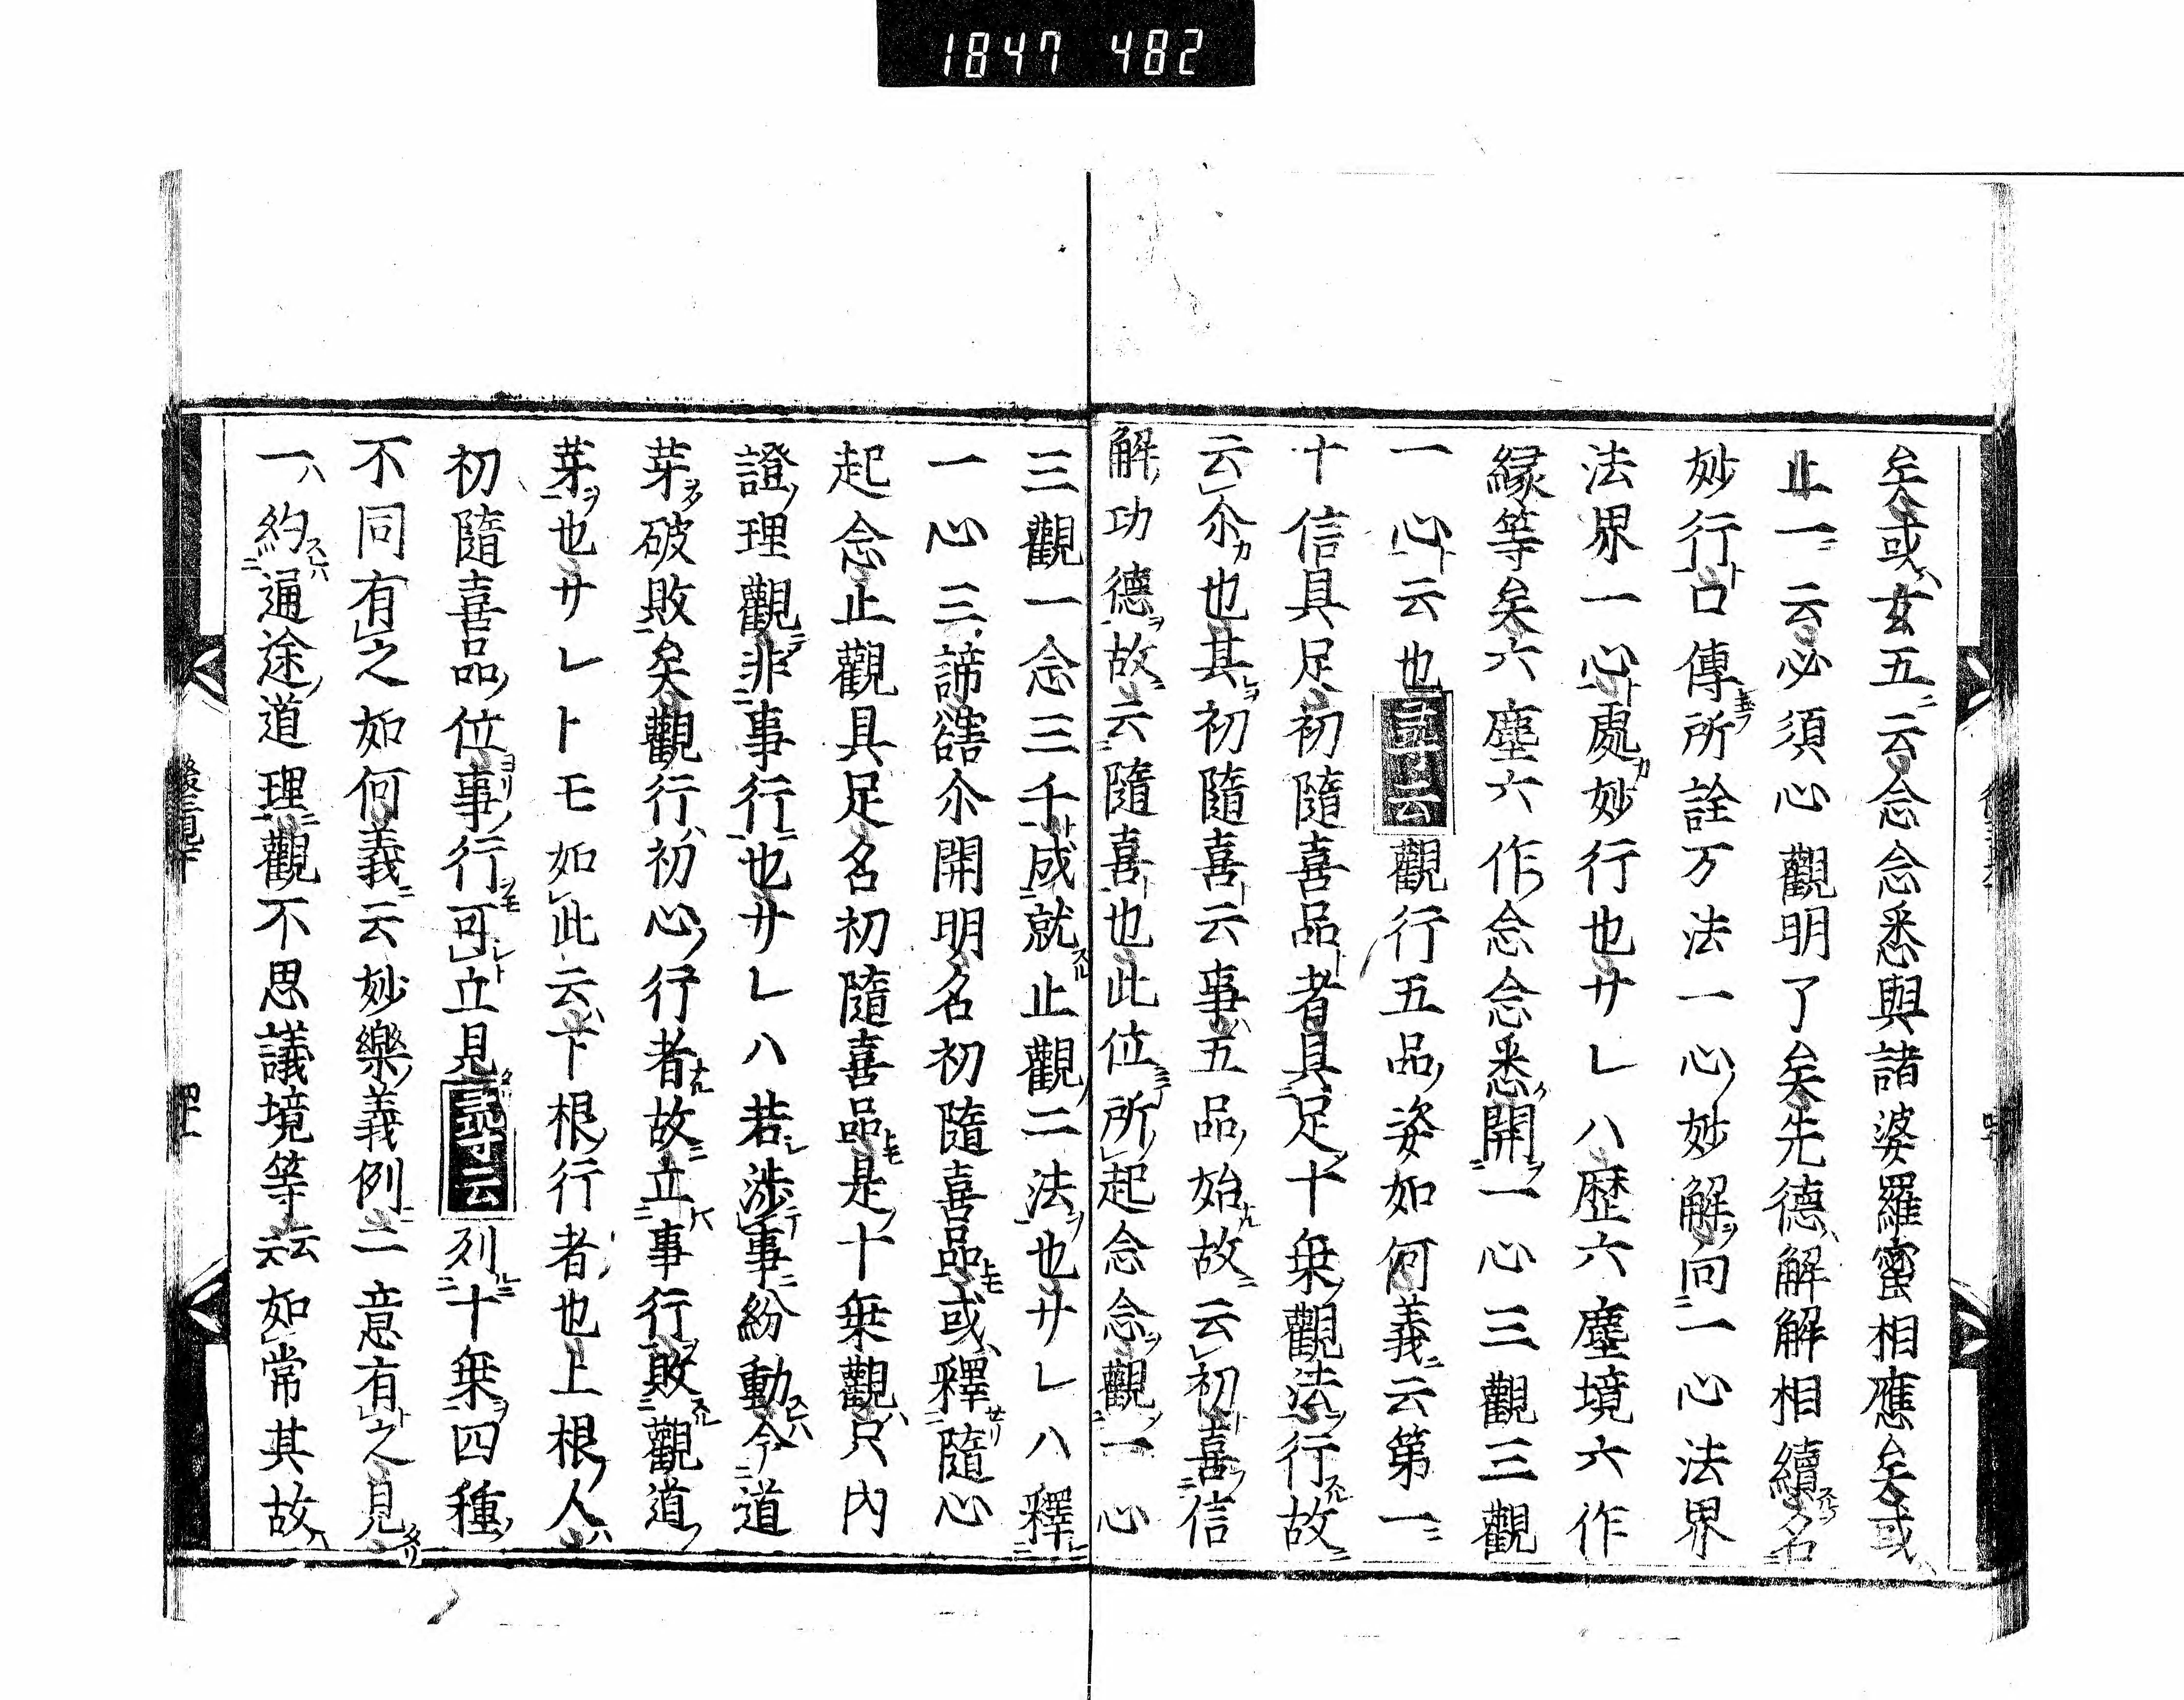 1847 482
矣或女五云念念悉與諸婆羅蜜相應矣或
止一云必須心觀明了矣先德解解相相續名
妙行口傳所詮万法一心妙解向一心法界
法界一心處妙行也サレハ歴六塵境六作
縁等矣六塵六作念念悉開一心三觀三觀
一心云也尋云觀行五品姿如何義云第一
十信具足初隨喜品者具足十乗觀法行故
云尒也其初隨喜云事五品始故云初喜信
解功德故云隨喜也此位所起念念觀一心
三觀一念三千成就止觀二法也サレハ釋
一心三諦豁尒開明名初隨喜品或釋隨心
起念止觀具足名初隨喜品是十乗觀只内
證理觀非事行也サレハ若渉事紛動令道
芽破敗矣觀行初心行者故立事行敗觀道
芽也サレトモ如此云下根行者也上根人
初隨喜品位事行可立見尋云列十乗四種
不同有之如何義云妙樂義例二意有之見
一約通途道理觀不思議境等云云如常其故